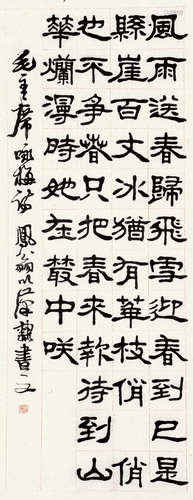 風雨送春歸飛雪迎春到已是
縣崖百丈冰猶有華枝俏俏
也不爭春只把春來報待到山
華爛漫時她在叢中咲
毛主席咏梅詩 鳳翁以漢隸書之